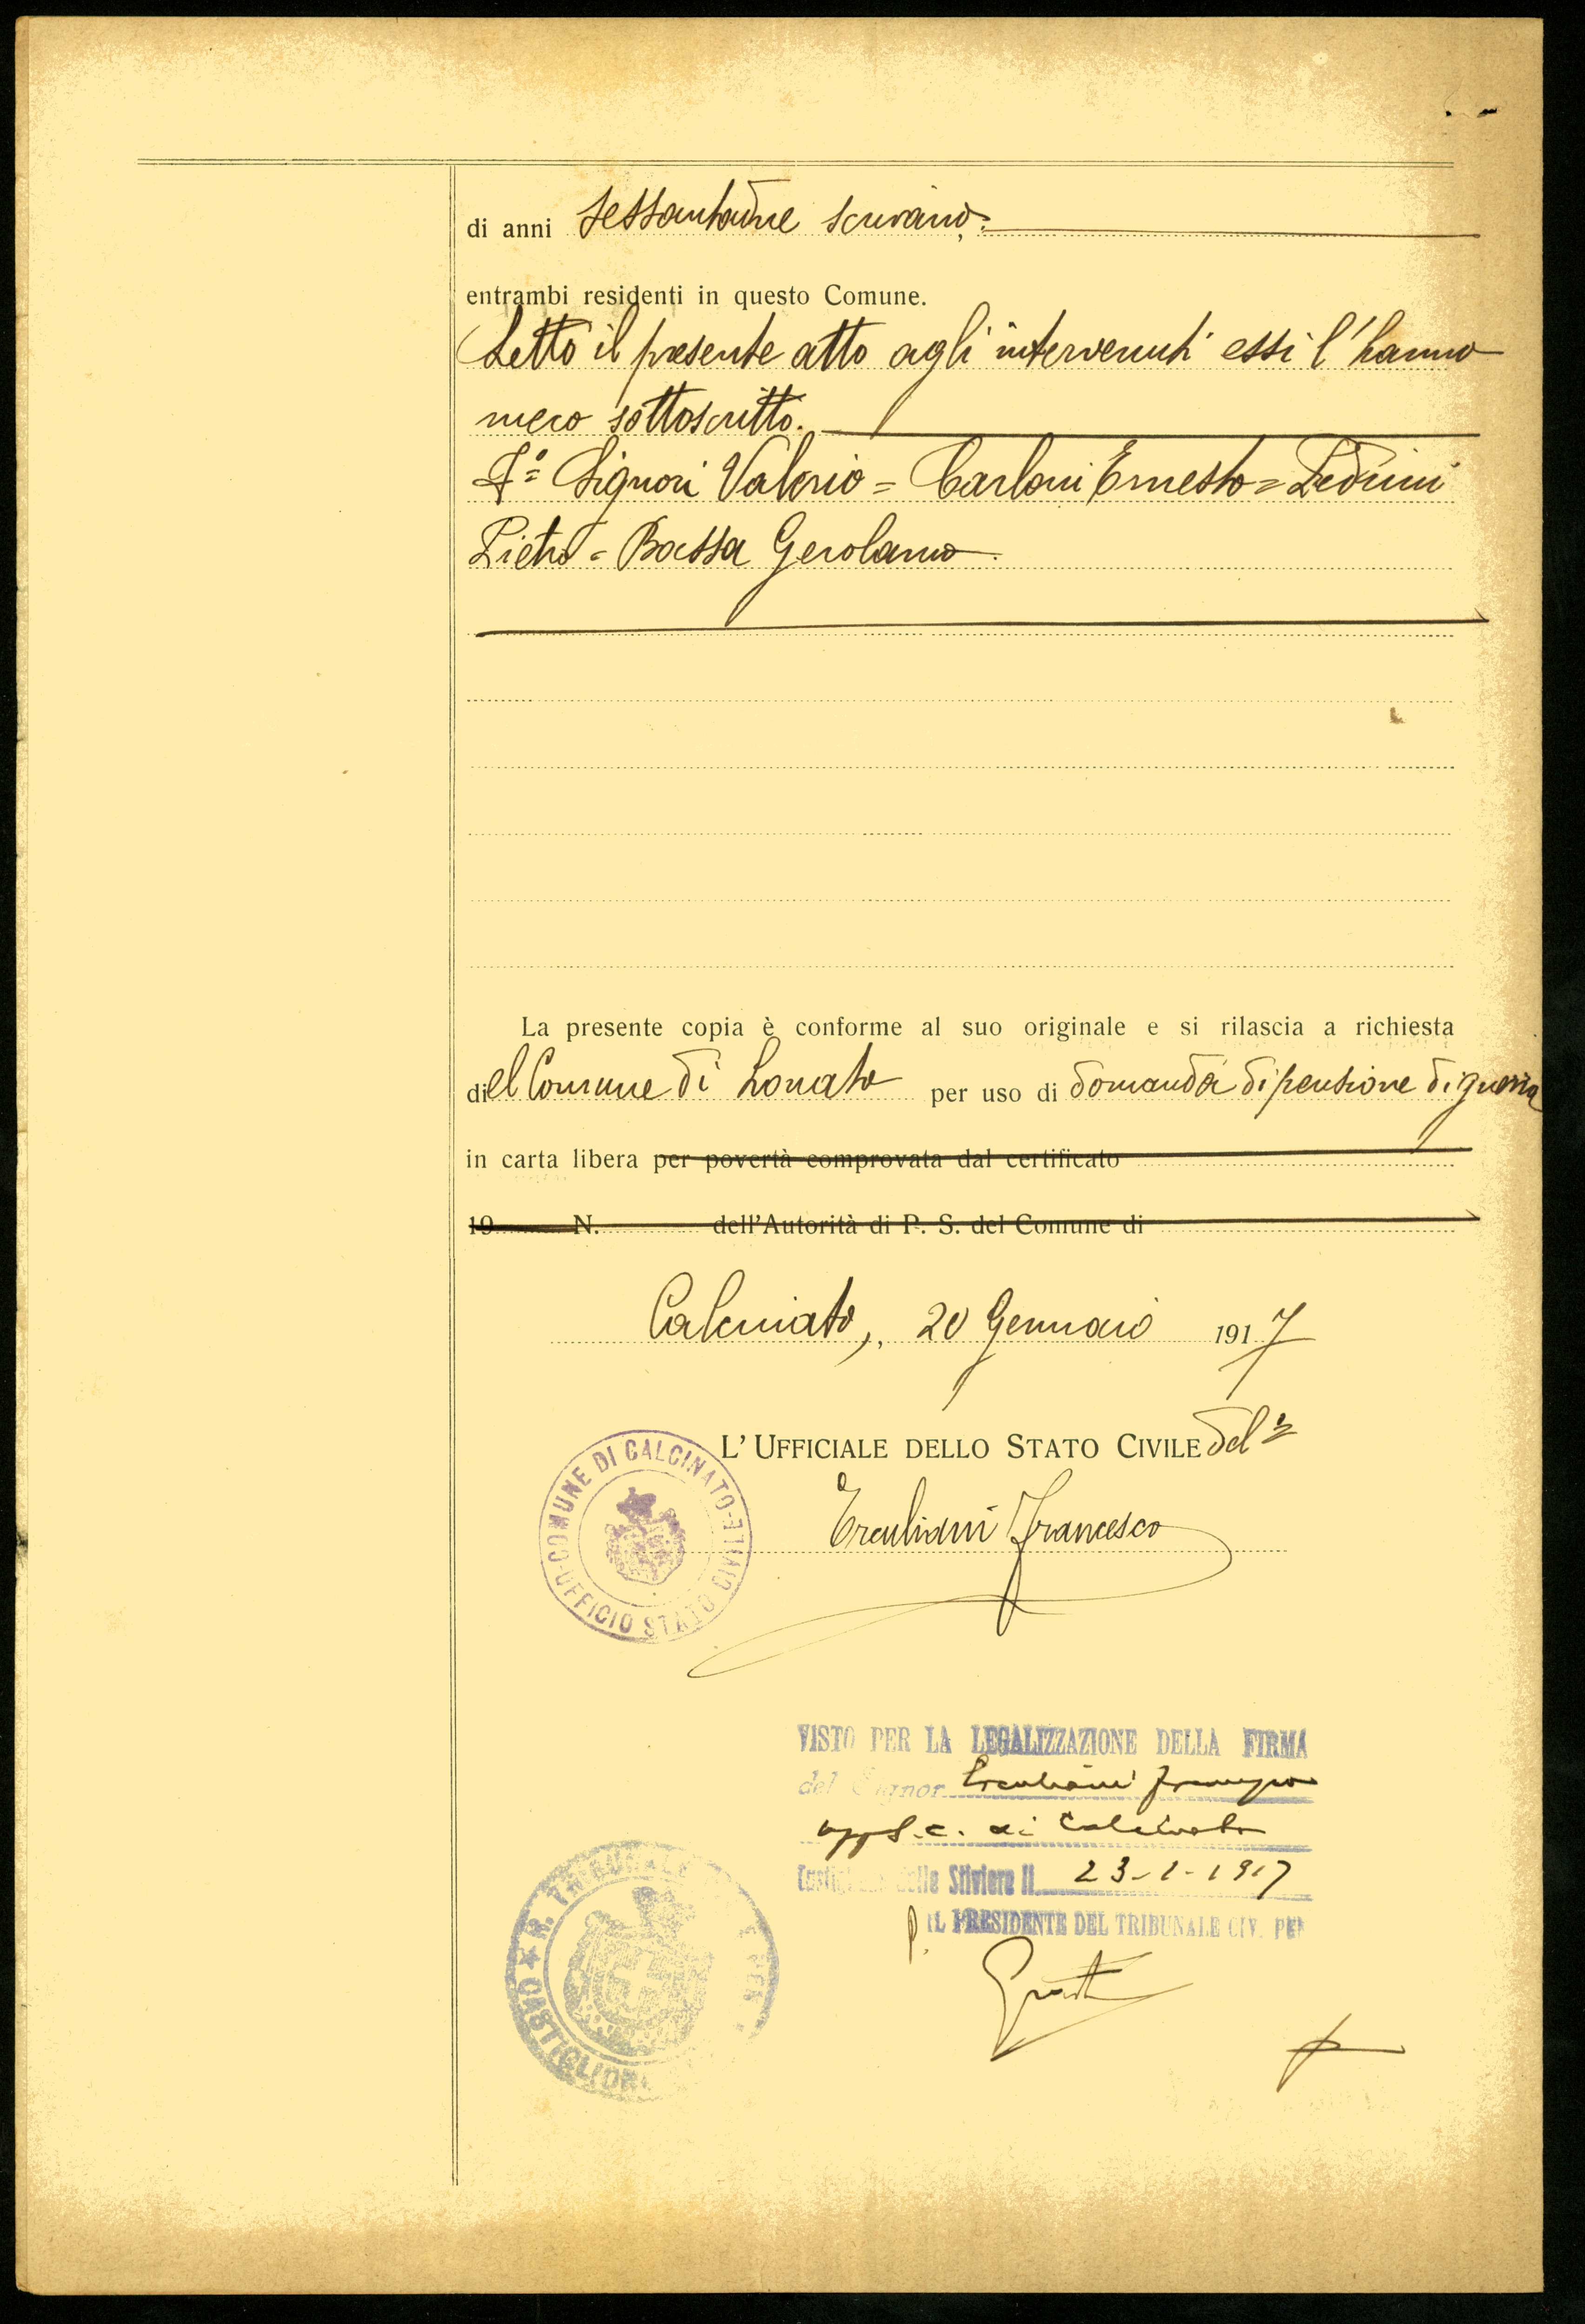 di anni sessantadue scrivano.
entrambi residenti in questo Comune.
Letto il presente atto agli intervenuti essi l'hanno
meco sottoscritto.
F.° Signori Valerio = Carloni Ernesto = Pedrini
Pietro = Bassa Gerolamo.
La presente copia è conforme al suo originale e si rilascia a richiesta
del Comune di Lonato per uso di domanda di pensione di guerra
in carta libera per povertà comprovata dal certificato
19 N. dell'Autorità di P. S. del Comune di
Calcinato, 20 Gennaio 1917
L'UFFICIALE DELLO STATO CIVILE del°
COMUNE DI CALCINATO - UFFICIO STATO CIVILE -
Erculiani Francesco
VISTO PER LA LEGALIZZAZIONE DELLA FIRMA
del Signor Erculiani Francesco
uff S. C. di Calcinato
Castiglione delle Stiviere li 23-1-1917
P. IL PRESIDENTE DEL TRIBUNALE CIV. PEN
R. TRIBUNALE E PEN CASTIGLIONE